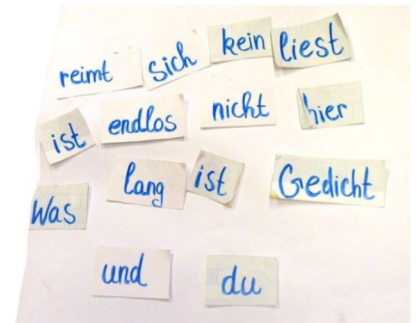 reimt sich kein liest
ist endlos nicht hier
Was lang ist Gedicht
und du